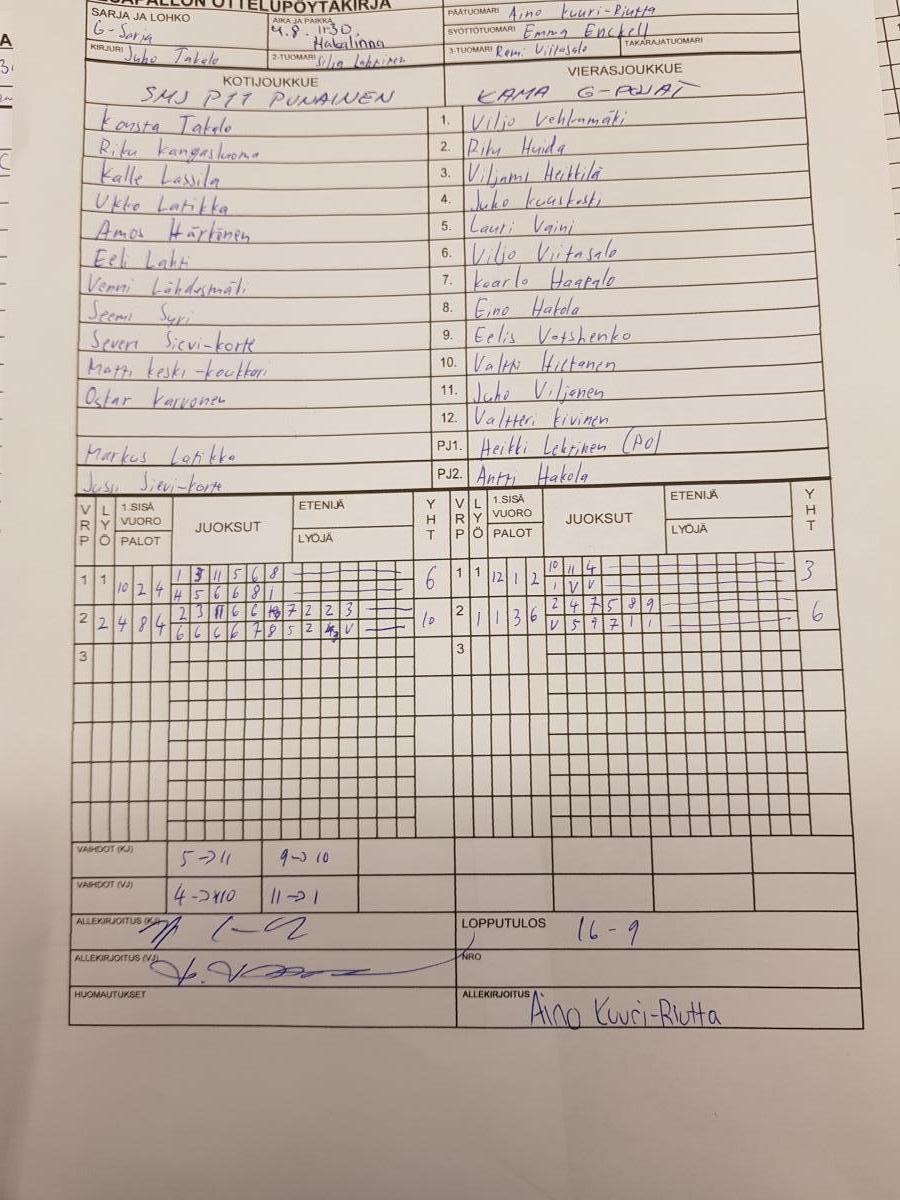 PESÄPALLON OTTELUPÖYTÄKIRJA
SARJA JA LOHKO
G-Sarja
AIKA JA PAIKKA
4.8. 11:30
Hakalinna
PÄÄTUOMARI Aino Kuuri-Riutta
SYÖTTÖTUOMARI Emma Enckell
KIRJURI Juho Takala
2-TUOMARI Silja Lahtinen
3-TUOMARI Roni Viitasalo TAKARAJATUOMARI
KOTIJOUKKUE
SMJ P11 PUNAINEN
VIERASJOUKKUE
KAMA G-POJAT
Konsta Takala 1. Viljo Vehkamäki
Riku Kangasluoma 2. Riku Huida
Kalle Lassila 3. Viljami Heikkilä
Ukko Latikka 4. Juho Kuuskoski
Amos Härkönen 5. Lauri Vaini
Eeli Lahti 6. Viljo Viitasalo
Venni Lähdesmäki 7. Kaarlo Haapalo
Seemi Syri 8. Eino Hakola
Severi Sievi-Korte 9. Eelis Votshenko
Matti Keski-Koukkari 10. Valtti Hiltunen
Oskar Karvonen 11. Juho Viljanen
12. Valtteri Kivinen
Markus Latikka PJ1. Heikki Lehtinen (PO)
Jussi Sievi-Korte PJ2. Antti Hakola
VRP LYÖ 1.SISÄ VUORO PALOT JUOKSUT ETENIJÄ LYÖJÄ YHT VRP LYÖ 1.SISÄ VUORO PALOT JUOKSUT ETENIJÄ LYÖJÄ YHT
1 1 10 2 4 1 3 11 5 6 8 6 1 1 12 1 2 10 11 4 3
4 5 6 6 8 1 1 V V
2 2 4 8 4 2 3 11 6 6 7 2 2 3 10 2 1 1 3 6 2 4 7 5 8 9 6
6 6 6 6 7 8 5 2 V V 5 9 7 1 1
3 3
VAIHDOT (KJ) 5->11 9->10
VAIHDOT (VJ) 4->10 11->1
ALLEKIRJOITUS (KJ) LOPPUTULOS 16-9
ALLEKIRJOITUS (VJ) NRO
HUOMAUTUKSET ALLEKIRJOITUS Aino Kuuri-Riutta